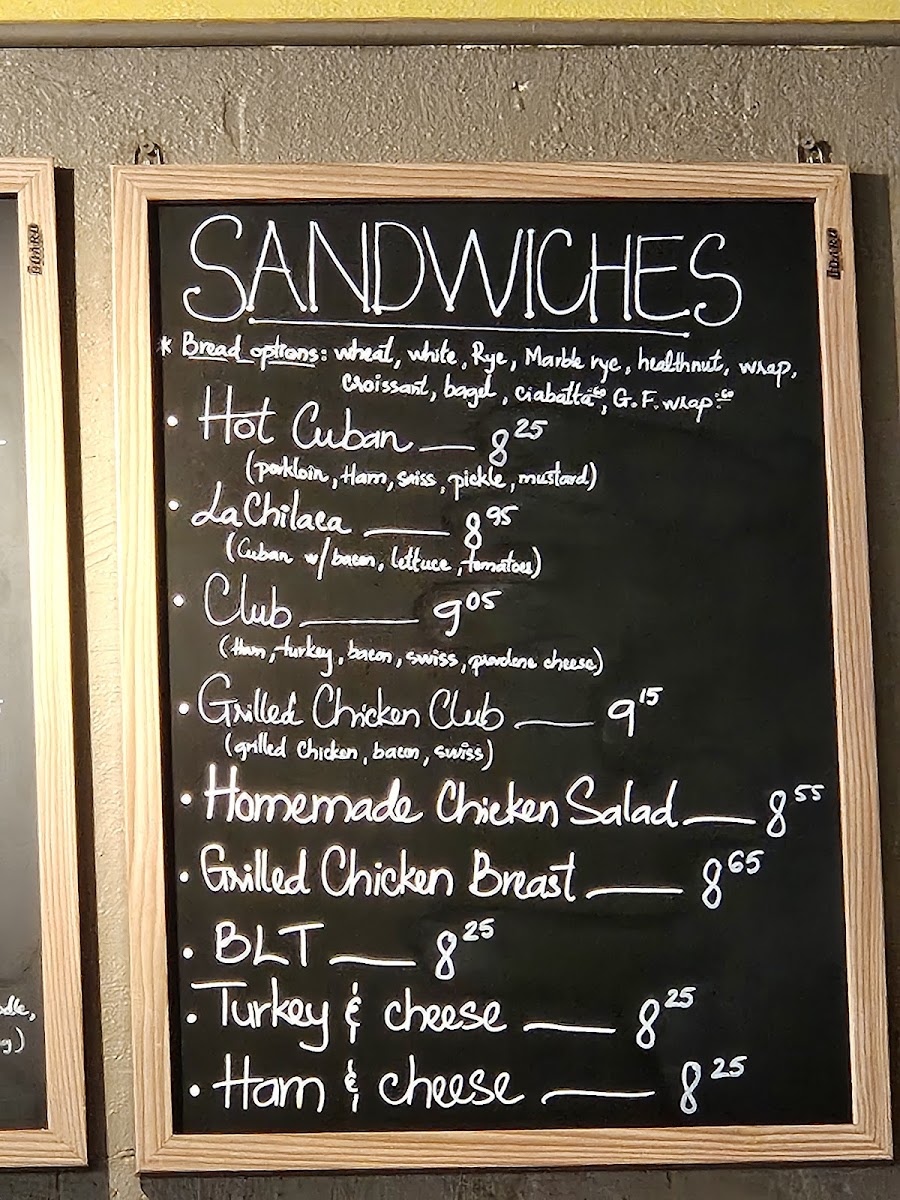 SANDWICHES
* Bread options: wheat, white, Rye, Marble rye, healthnut, wrap,
croissant, bagel, ciabatta .60, G.F. wrap .60
• Hot Cuban — 8 25
(porkloin, Ham, swiss, pickle, mustard)
• La Chilaca — 8 95
(Cuban w/ bacon, lettuce, tomatoes)
• Club — 9 05
(Ham, turkey, bacon, swiss, provolone cheese)
• Grilled Chicken Club — 9 15
(grilled chicken, bacon, swiss)
• Homemade Chicken Salad — 8 55
• Grilled Chicken Breast — 8 65
• BLT — 8 25
• Turkey & cheese — 8 25
• Ham & cheese — 8 25